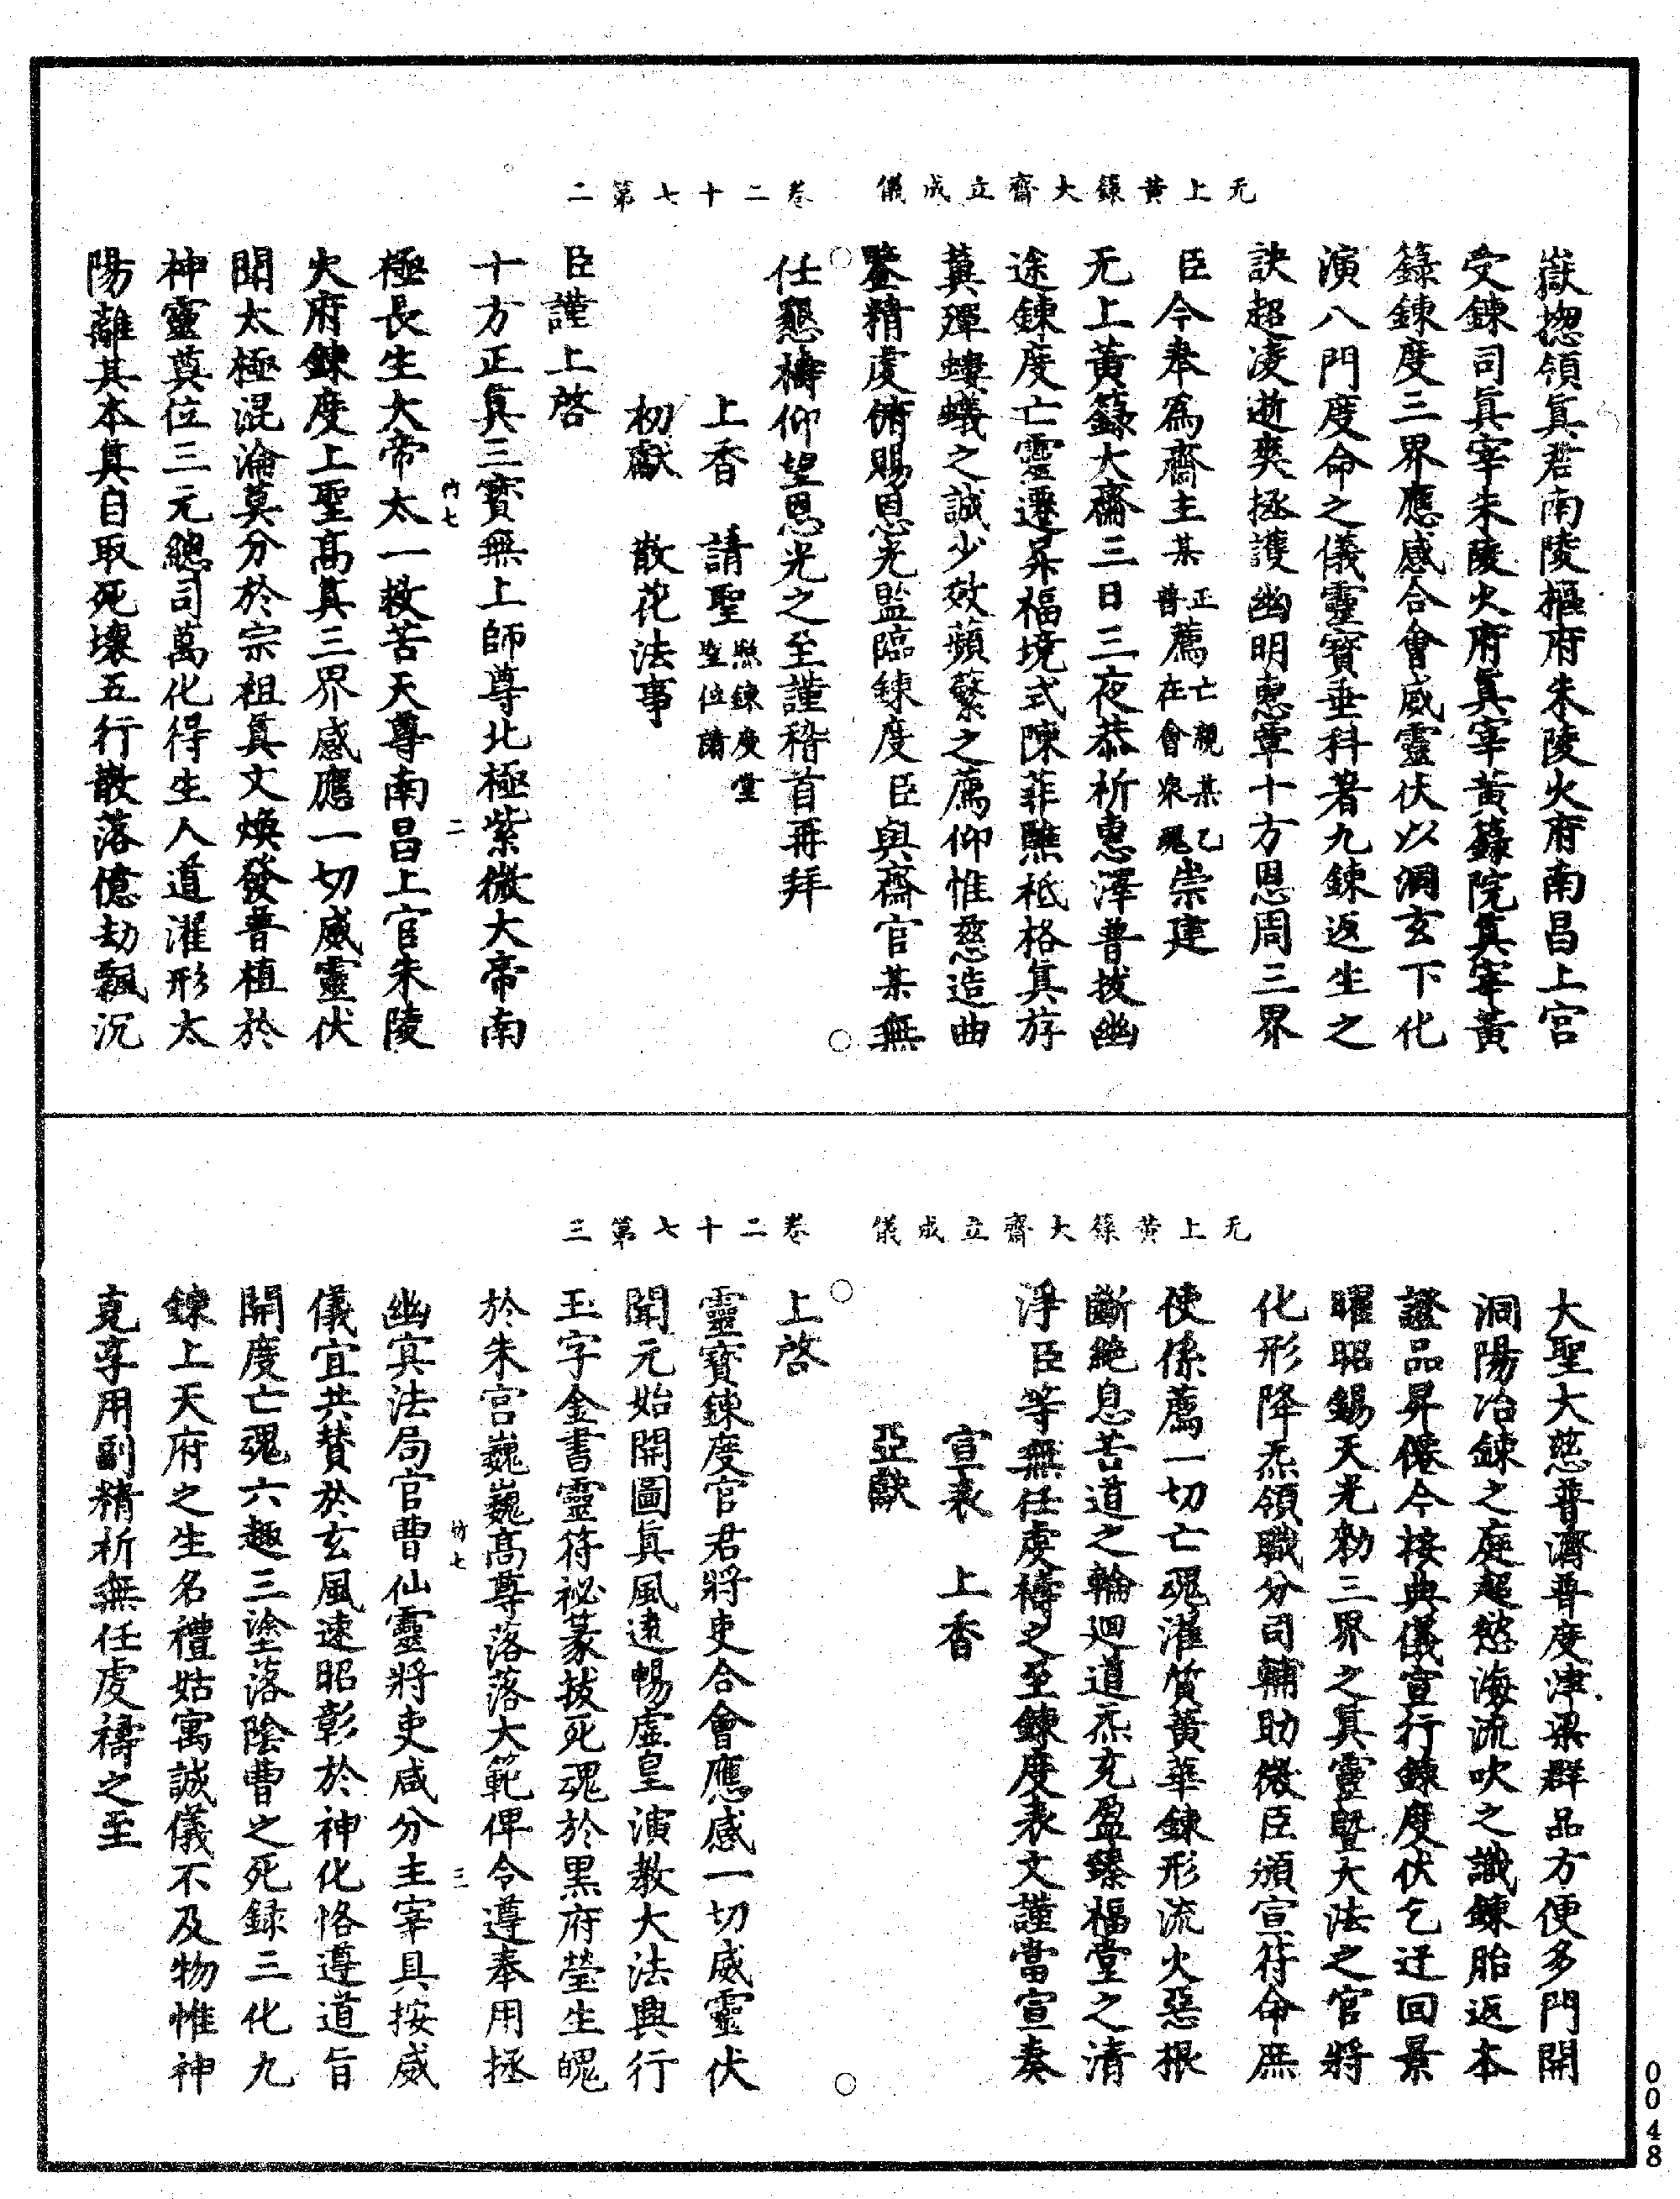 无上黃籙大齋立成儀　卷二十七第二
嶽揔領眞君南陵樞府朱陵火府南昌上宮
受鍊司眞宰朱陵火府眞宰黃籙院眞宰黃
籙鍊度三界應感合會威靈伏以洞玄下化
演八門度命之儀靈寶垂科著九鍊返生之
訣超凌逝爽拯護幽明惠覃十方恩周三界
臣今奉爲齋主某正薦亡親某乙普薦在會衆魂崇建
无上黃籙大齋三日三夜恭祈惠澤普拔幽
途鍊度亡靈遷昇福境式陳菲醮祗格眞斿
冀殫螻蟻之誠少效蘋蘩之薦仰惟慈造曲
鑒精虔俯賜恩光監臨鍊度臣與齋官某無
任懇禱仰望恩光之至謹稽首再拜
上香　請聖照鍊度堂聖位請
初獻　散花法事
臣謹上啓
十方正眞三寶無上師尊北極紫微大帝南
極長生大帝太一救苦天尊南昌上宮朱陵
竹七　二
火府鍊度上聖高眞三界感應一切威靈伏
聞太極混淪莫分於宗祖眞文煥發普植於
神靈奠位三元總司萬化得生人道濯形太
陽離其本眞自取死壞五行散落億劫飄沉
无上黃籙大齋立成儀　卷二十七第三
大聖大慈普濟普度津梁群品方便多門開
洞陽冶鍊之庭超慾海流吹之識鍊胎返本
證品昇僊今按典儀宣行鍊度伏乞迂回景
曜昭錫天光勑三界之眞靈曁大法之官將
化形降炁領職分司輔助微臣頒宣符命庶
使係薦一切亡魂灌質黃華鍊形流火惡根
斷絶息苦道之輪迴道炁充盈臻福堂之清
淨臣等無任虔禱之至鍊度表文謹當宣奏
宣表　上香
亞獻
上啓
靈寶鍊度官君將吏合會應感一切威靈伏
聞元始開圖眞風遠暢虛皇演教大法興行
玉字金書靈符祕篆拔死魂於黑府瑩生魄
於朱宮巍巍高尊落落大範俾令遵奉用拯
竹七　三
幽冥法局官曹仙靈將吏咸分主宰具按威
儀宜共賛於玄風速昭彰於神化恪遵道旨
開度亡魂六趣三塗落陰曹之死録三化九
鍊上天府之生名禮姑寓誠儀不及物惟神
克享用副精祈無任虔禱之至
0048